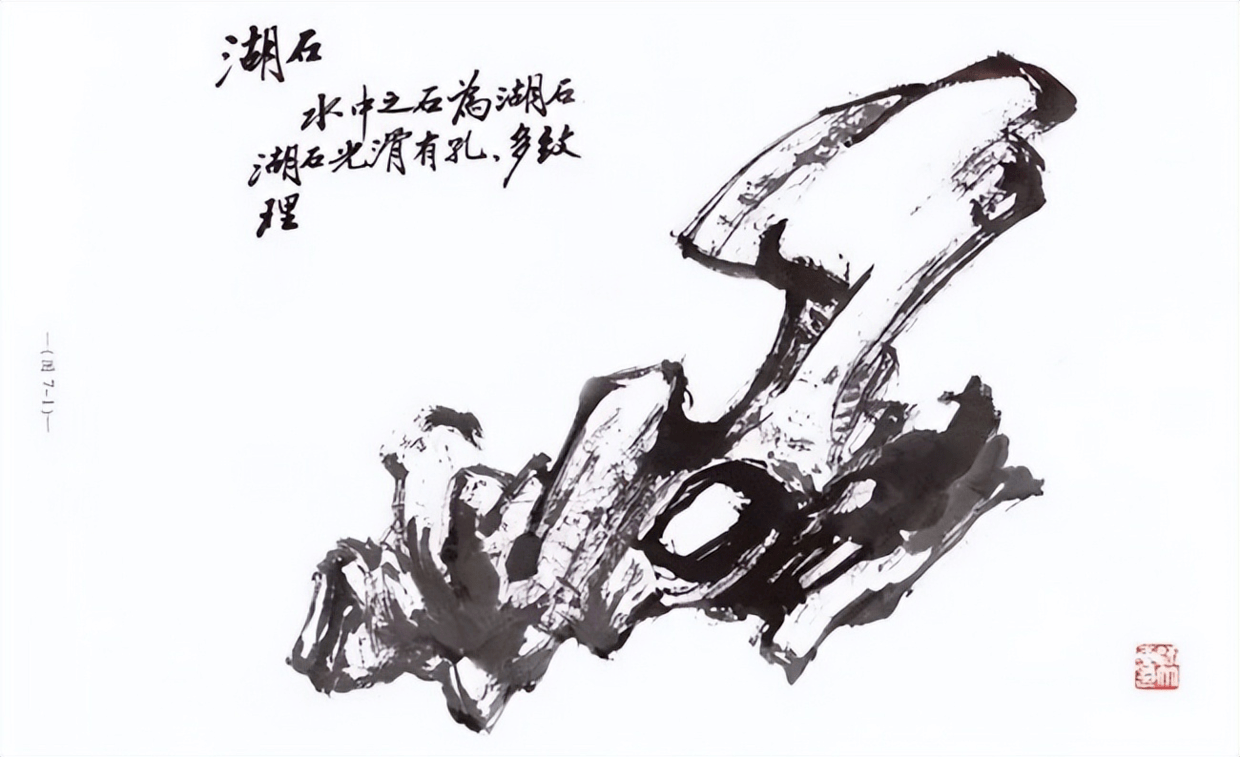 湖石
水中之石為湖石
湖石光滑有孔、多紋
理
—(图 7-1)—